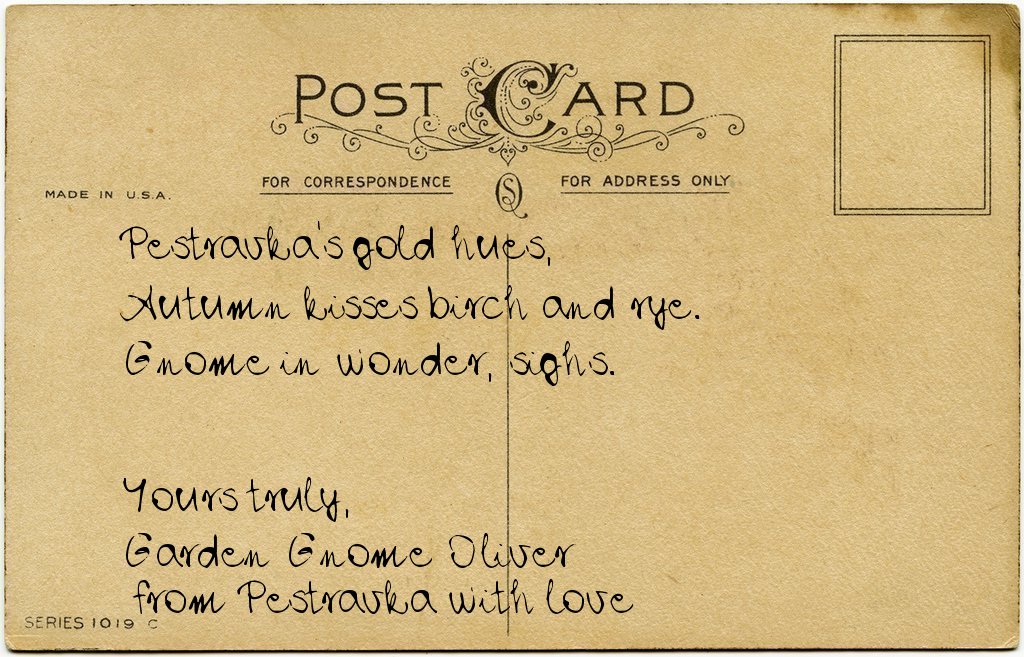 POST CARD
FOR CORRESPONDENCE
FOR ADDRESS ONLY
MADE IN U.S.A.
Pestravka's gold hues,
Autumn kisses birch and rye.
Gnome in wonder, sighs.
Yours truly,
Garden Gnome Oliver
from Pestravka with love
SERIES 1019 C